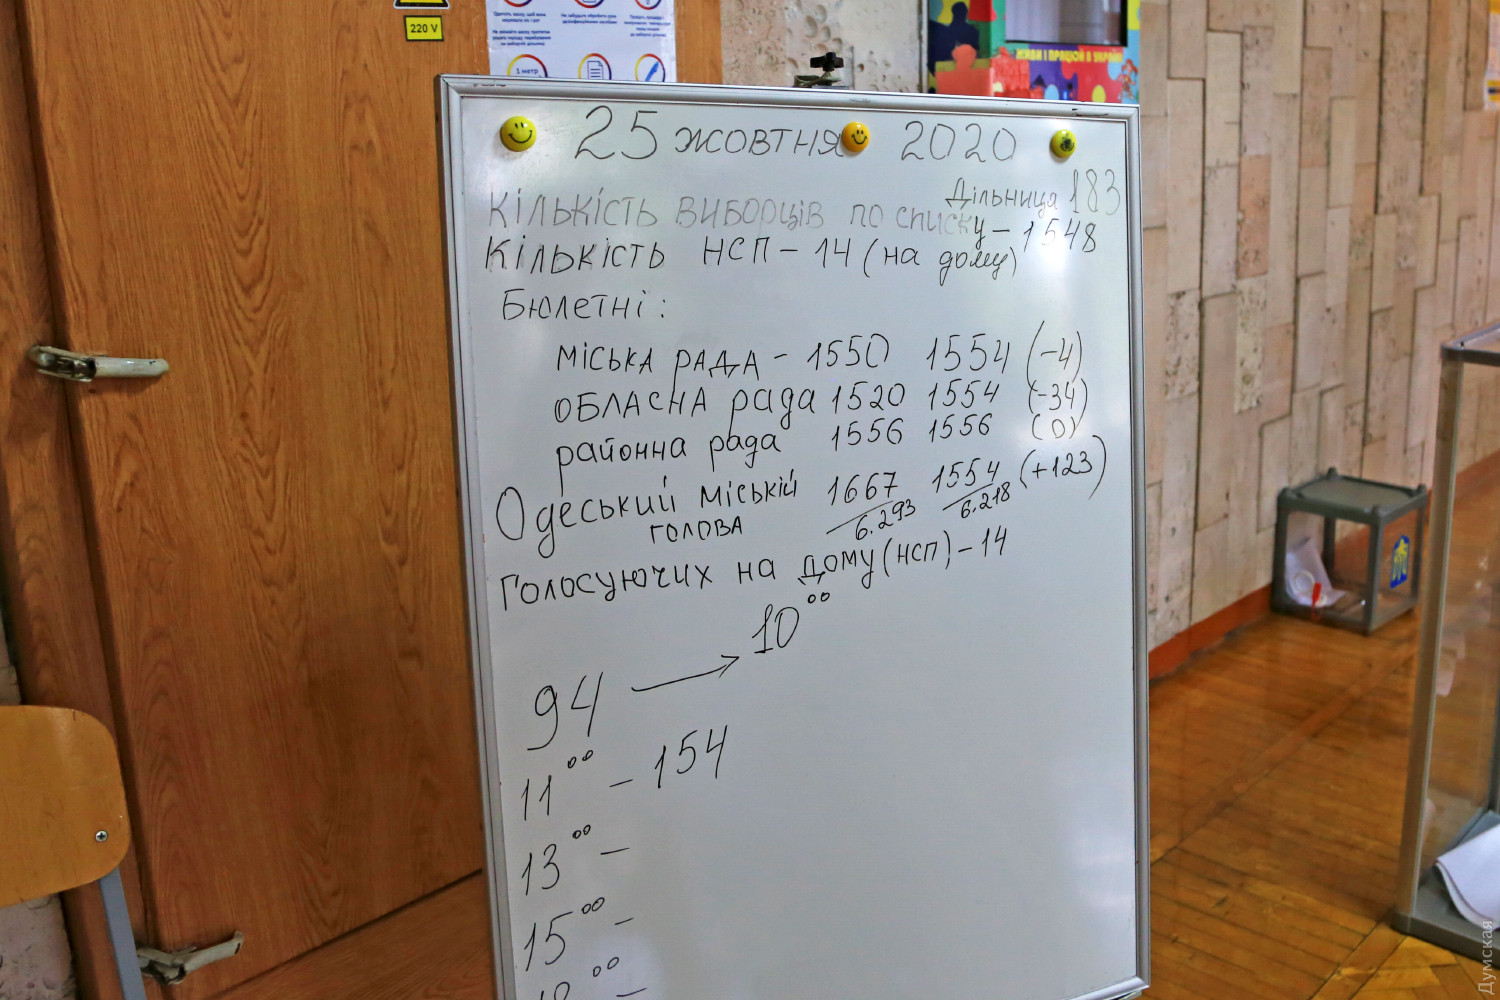 220 V
1 метр
ЖИВИ І ПРАЦЮЙ В УКРАЇНІ
25 жовтня 2020
Дільниця 183
Кількість виборців по списку – 1548
Кількість НСП – 14 (на дому)
Бюлетні:
міська рада – 1550 1554 (-4)
обласна рада 1520 1554 (-34)
районна рада 1556 1556 (0)
Одеський міській голова 1667 1554 (+123)
6.293 6.218
Голосуючих на дому (НСП) – 14
94 → 10⁰⁰
11⁰⁰ – 154
13⁰⁰ –
15⁰⁰ –
Думская